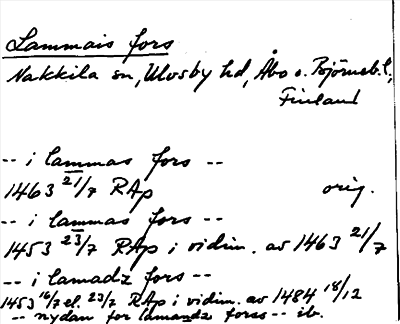 Lammais fors
Nakkila sn, Ulvsby hd, Åbo o. Björneb. l,
Finland
-- i lammas fors --
1463 21/7 RAp orig.
-- i lammas fors --
1453 23/7 RAp i vidim. av 1463 21/7
-- i lamadz fors --
1453 16/7 el. 23/7 RAp i vidim. av 1484 18/12
-- nydan for lamandz forss -- ib.